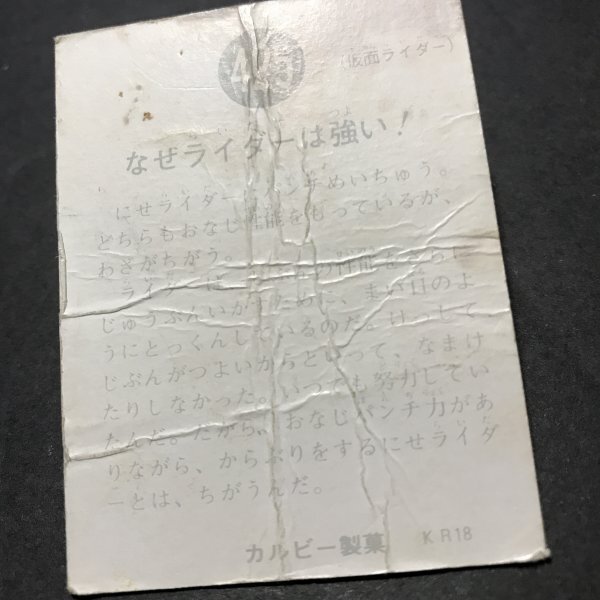 (仮面ライダー)
なぜライダーは強い!
にせライダーにパンチめいちゅう。
どちらもおなじ性能をもっているが、
わざがちがう。
ライダーは の性能をさらに
じゅうぶんいかすために、まい日のよ
うにとっくんしているのだ。けっして、
じぶんがつよいからといって、なまけ
たりしなかった。いつでも努力してい
たんだ。だから、おなじパンチ力があ
りながら、からぶりをするにせライダ
ーとは、ちがうんだ。
カルビー製菓 KR18